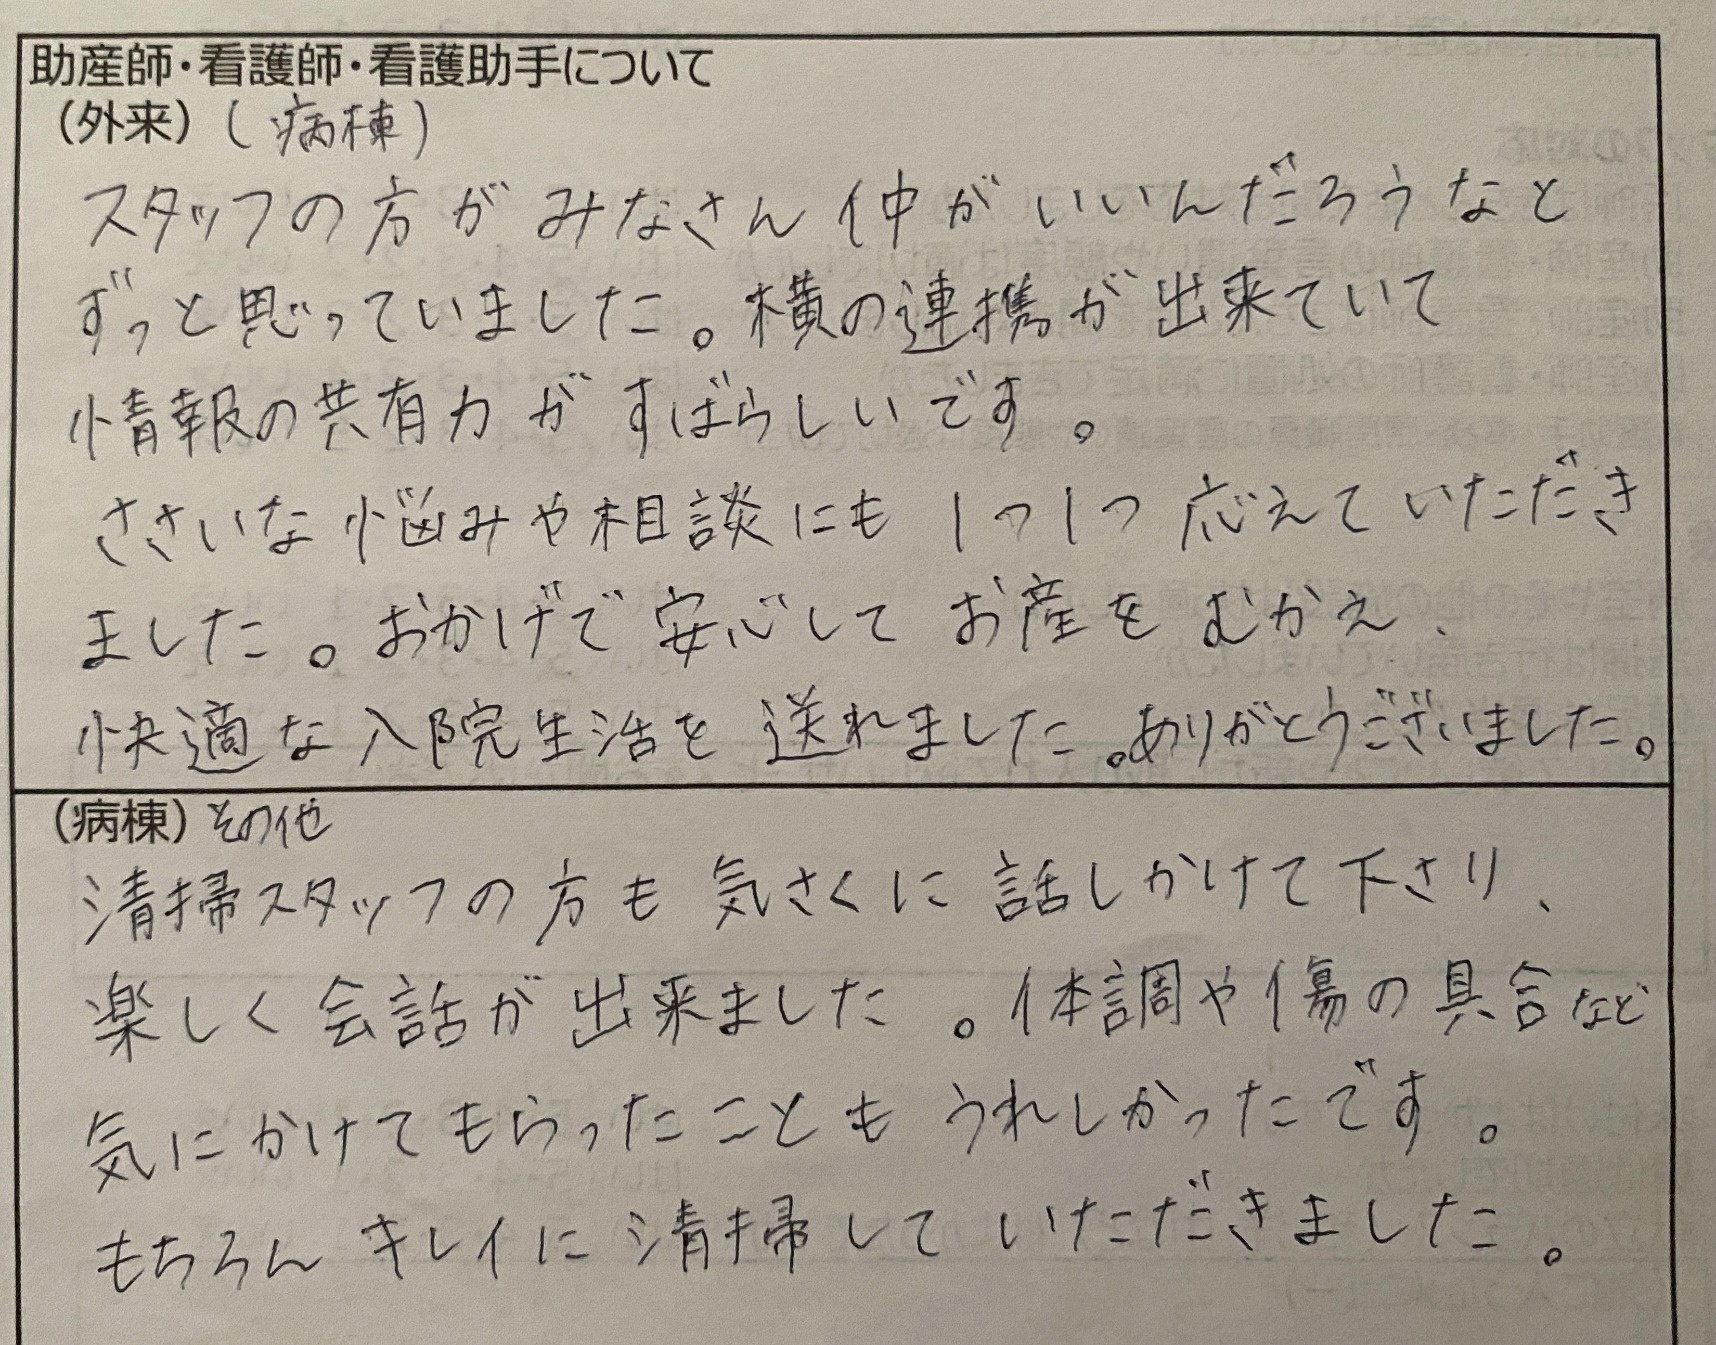 助産師・看護師・看護助手について
（外来）（病棟）
スタッフの方がみなさん仲がいいんだろうなと
ずっと思っていました。横の連携が出来ていて
情報の共有力がすばらしいです。
ささいな悩みや相談にも1つ1つ応えていただき
ました。おかげで安心してお産をむかえ、
快適な入院生活を送れました。ありがとうございました。
（病棟）その他
清掃スタッフの方も気さくに話しかけて下さり、
楽しく会話が出来ました。体調や傷の具合など
気にかけてもらったこともうれしかったです。
もちろんキレイに清掃していただきました。